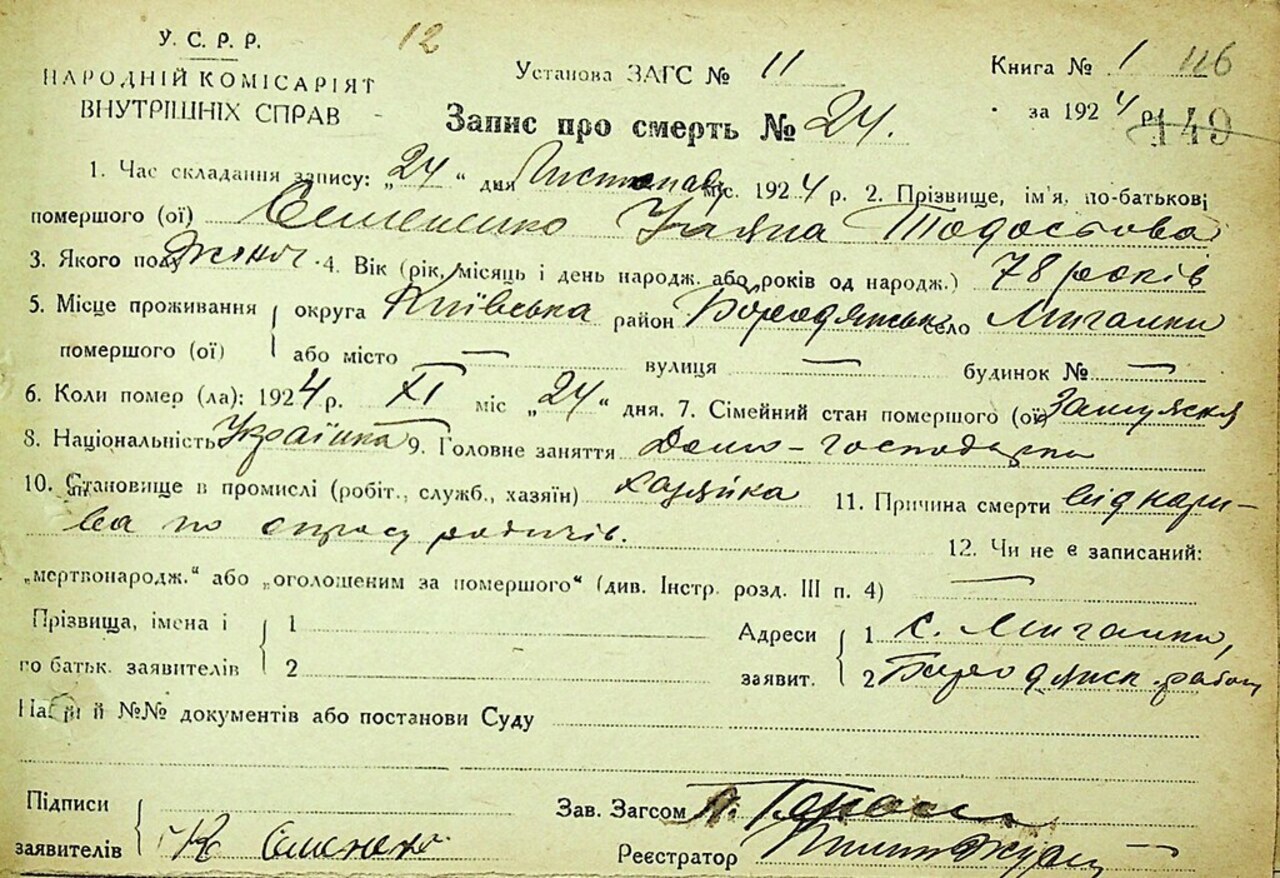 У. С. Р. Р.
НАРОДНІЙ КОМІСАРІЯТ
ВНУТРІШНІХ СПРАВ
12
Установа ЗАГС № 11
Книга № 1 116
за 1924 р. 149
Запис про смерть № 24.
1. Час складання запису: „24“ дня Листопад міс. 1924 р. 2. Прізвище, ім'я, по-батькові
помершого (ої) Семененко Уляна Тодосьова
3. Якого полу жіноч. 4. Вік (рік, місяць і день народж. або років од народж.) 78 років
5. Місце проживання округа Київська район Бородянськ село Мигалки
помершого (ої) або місто — вулиця — будинок № —
6. Коли помер (ла): 1924 р. XI міс „24“ дня. 7. Сімейний стан помершого (ої) Замужня
8. Національність Українка 9. Головне заняття Домо-господарка
10. Становище в промислі (робіт., служб., хазяїн) хазяйка 11. Причина смерти від нари-
ва по опросу родичів.
12. Чи не є записаний:
„мертвонародж.“ або „оголошеним за помершого“ (див. Інстр. розд. III п. 4) —
Прізвища, імена і 1 Адреси 1 с. Мигалки,
по батьк. заявителів 2 заявит. 2 Бородянск. району
№№ документів або постанови Суду
Підписи
Зав. Загсом
заявителів
Реєстратор